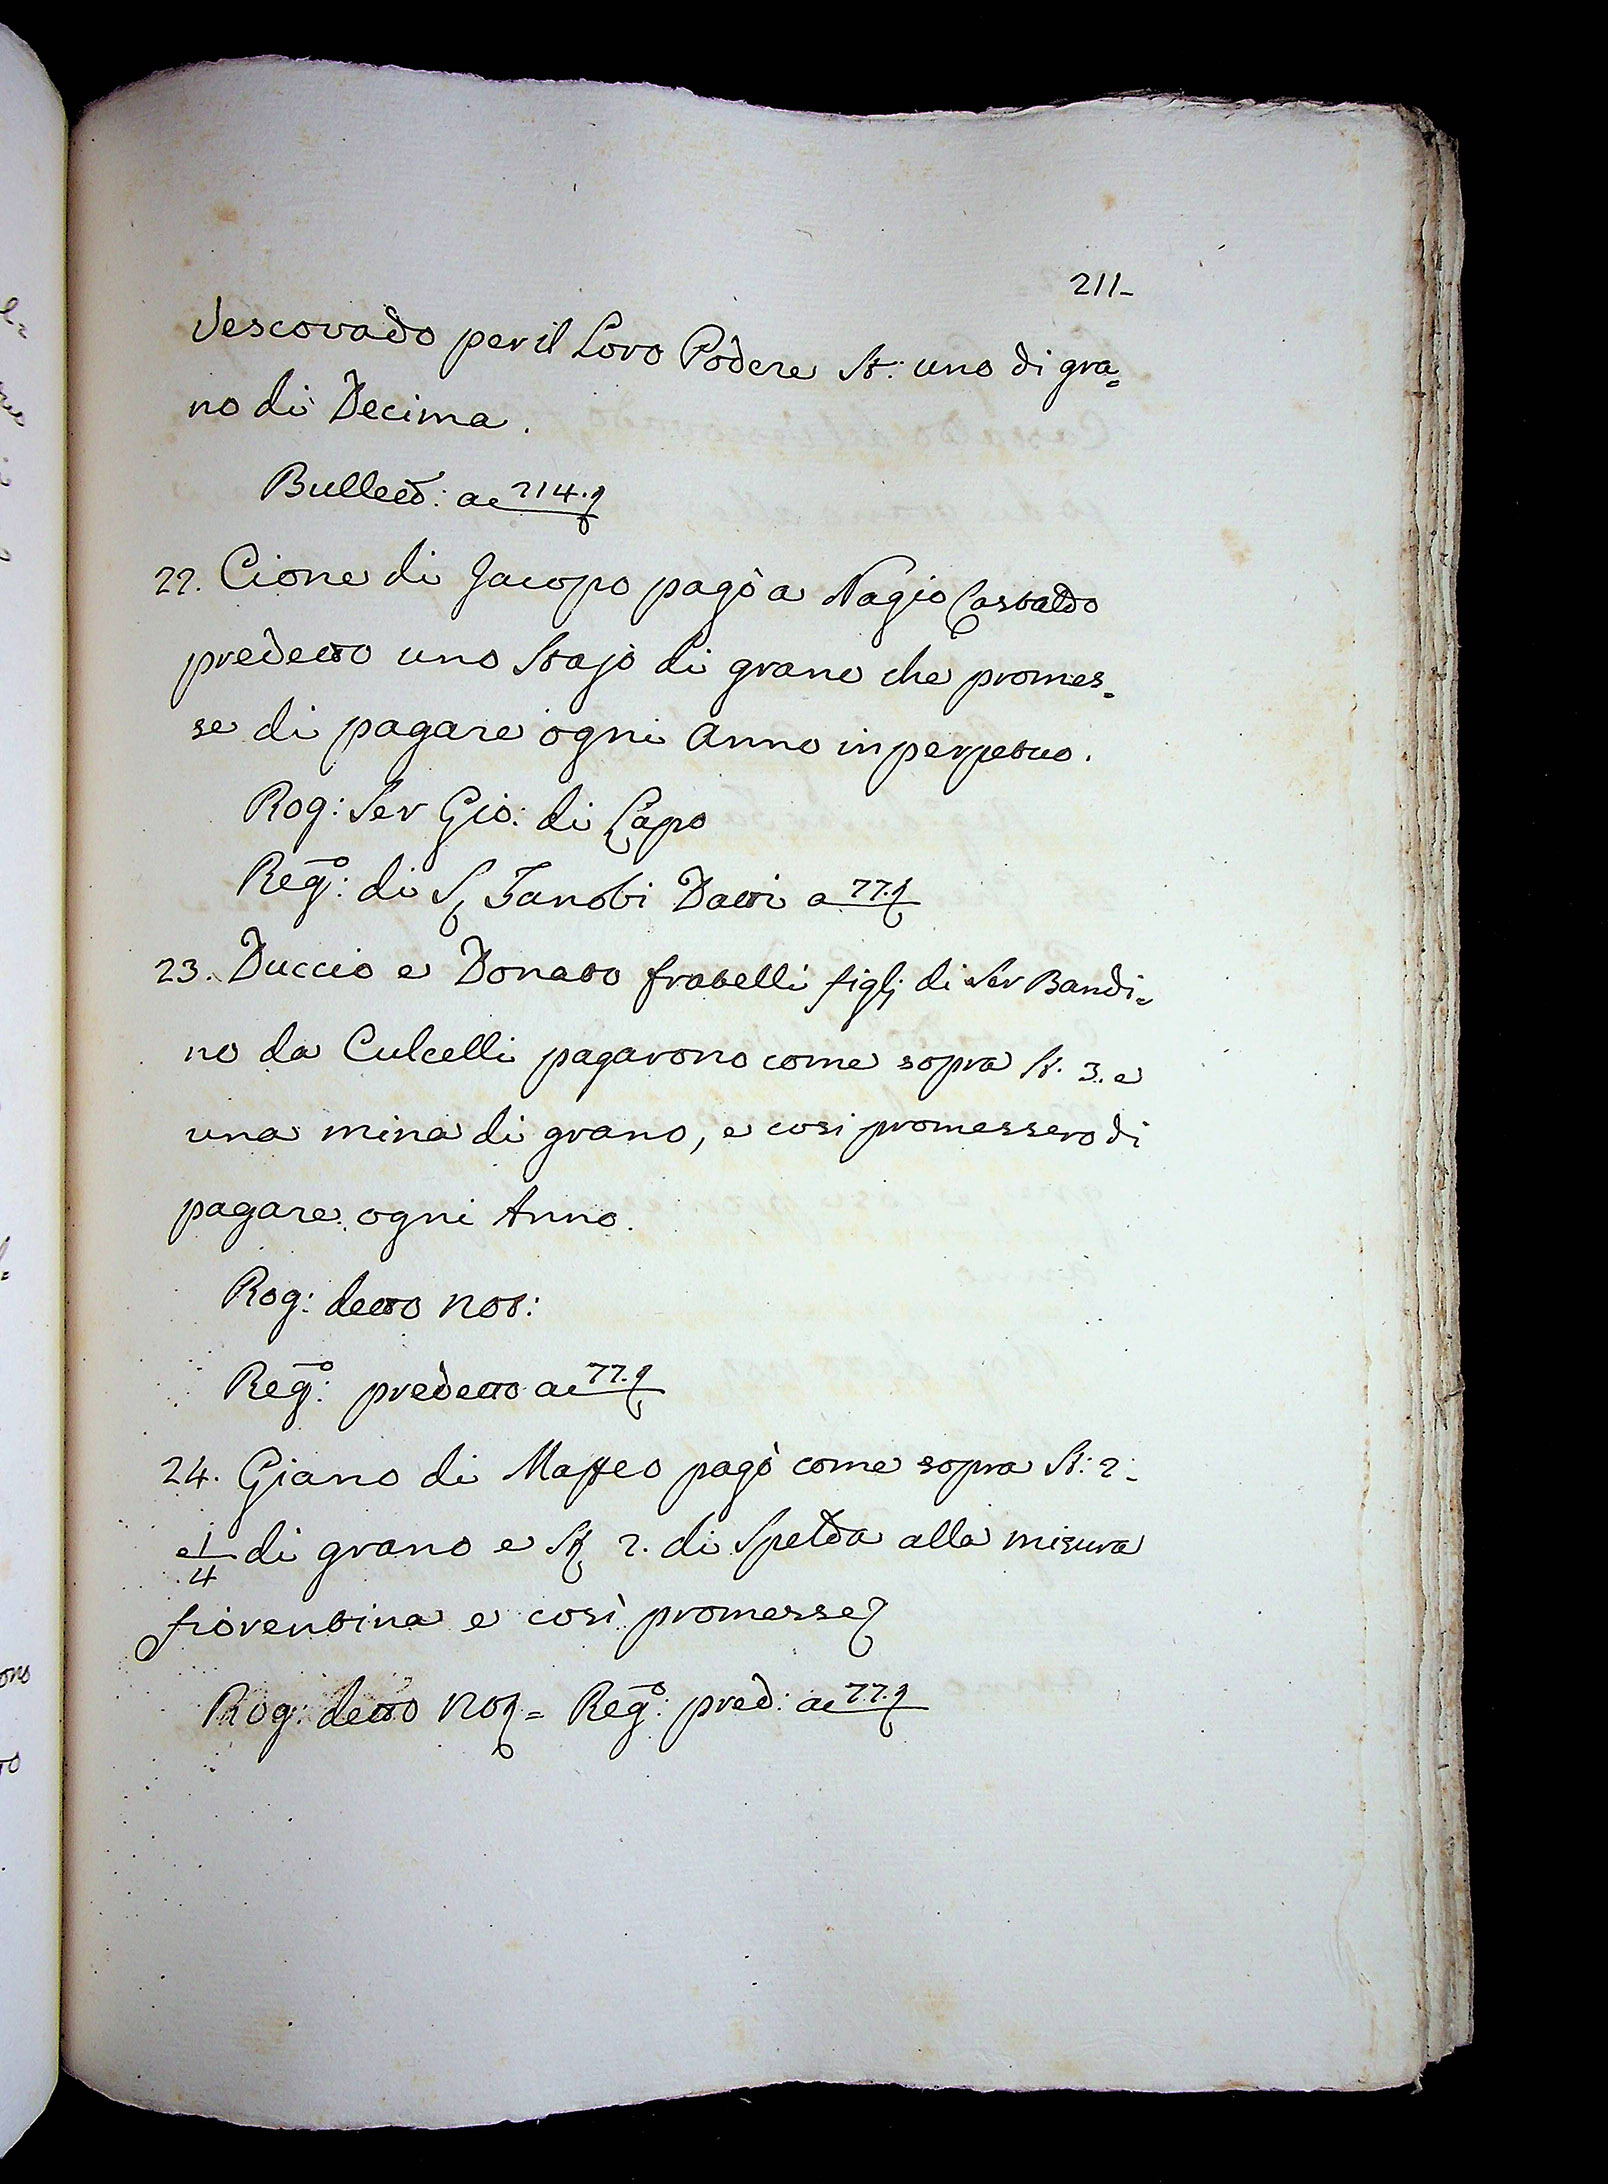 211-
Vescovado per il Loro Podere St: uno di gra=
no di Decima.
Bullett: a 214.
22. Cione di Jacopo pagò a Nagio Castaldo
predetto uno Stajo di grano che promes=
se di pagare ogni Anno in perpetuo.
Rog: Ser Gio: di Lapo
Reg:º di S. Zanobi Datti a 77.
23. Duccio e Donato fratelli figlj di Ser Bandi=
no da Culcelli pagarono come sopra St. 3. e
una mina di grano, e cosi promessero di
pagare ogni Anno.
Rog: detto Not:
Reg:º predetto a 77.
24. Giano di Maffeo pagò come sopra St: 2:
e 1/4 di grano e St. 2. di Spelda alla misura
fiorentina e così promesse
Rog: detto Not = Reg:º pred: a 77.